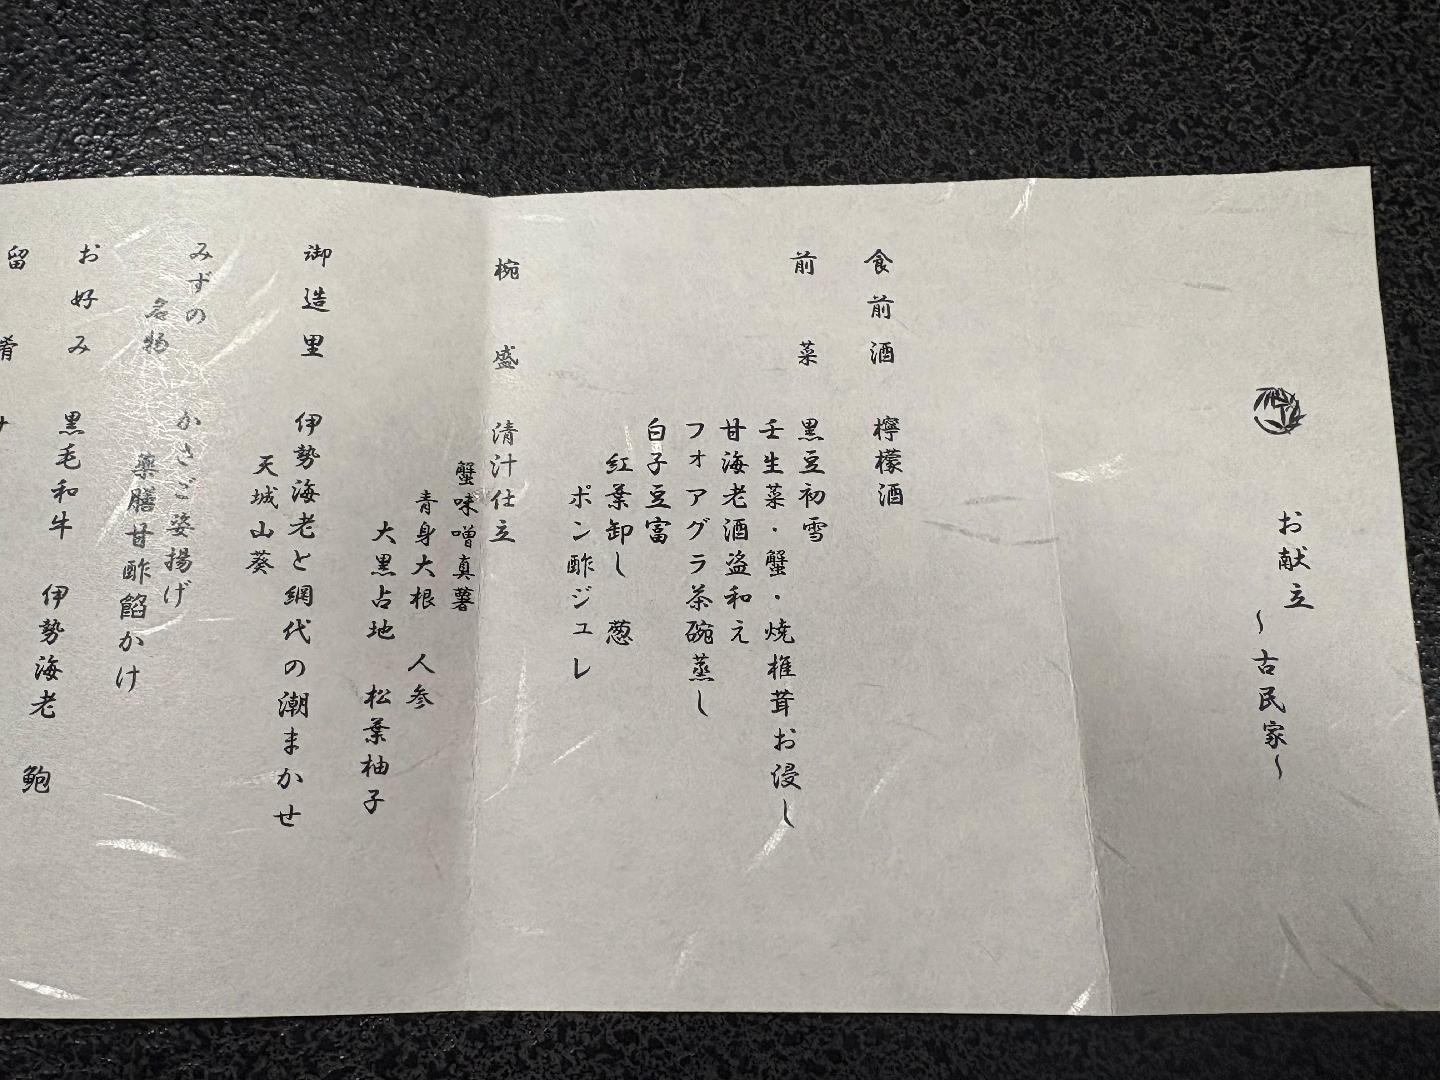 お献立
~古民家~
食前酒 檸檬酒
前菜 黒豆初雪
壬生菜・蟹・焼椎茸お浸し
甘海老酒盗和え
フォアグラ茶碗蒸し
白子豆富
紅葉卸し 葱
ポン酢ジュレ
椀盛 清汁仕立
蟹味噌真薯
青身大根 人参
大黒占地 松葉柚子
御造里 伊勢海老と網代の潮まかせ
天城山葵
みずの かさご姿揚げ
名物 薬膳甘酢餡かけ
お好み 黒毛和牛 伊勢海老 鮑
留肴